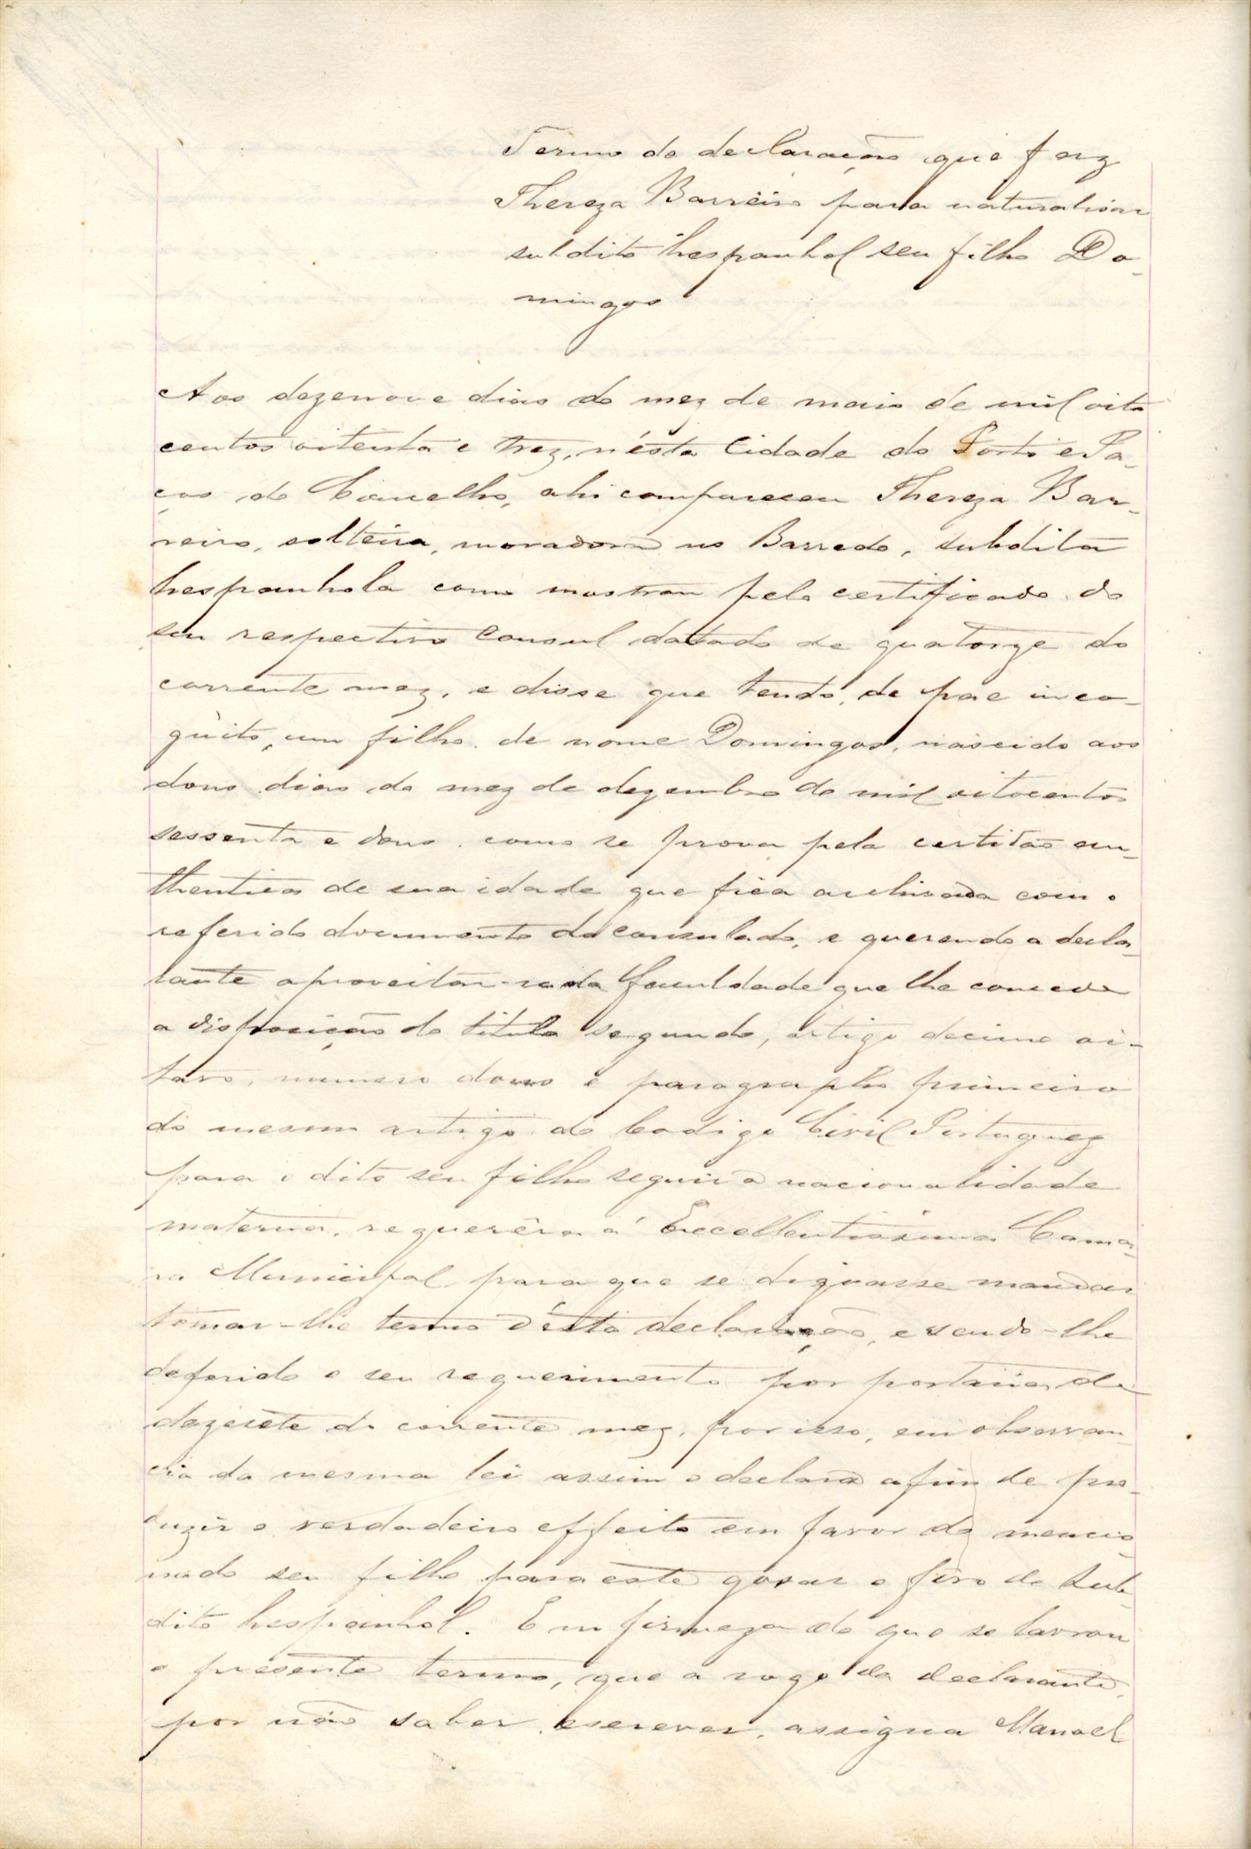 Termo de declaração que faz
Thereza Barreiro para naturalisar
subdito hespanhol seu filho Do-
mingos
Aos dezenove dias do mez de maio de mil oito
centos oitenta e trez, n'ésta Cidade do Porto e Pa-
ços do Concelho, ahi compareceu Thereza Bar-
reiro, solteira, moradora no Barredo, subdita
hespanhola como mostrou pelo certificado do
seu respectivo Consul datado de quatorze do
corrente mez, e disse que tendo, de pae inco-
gnito, um filho de nome Domingos, nascido aos
dous dias do mez de dezembro de mil oitocentos
sessenta e dous, como se prova pela certidão au-
thentica de sua idade que fica archivada com o
referido documento do consulado, e querendo a decla-
rante aproveitar-se da faculdade que lhe concede
a disposição do titulo segundo, artigo decimo oi-
tavo, numero dous e paragrapho primeiro
do mesmo artigo do Codigo Civil Portuguez
para o dito seu filho seguir a nacionalidade
materna, requerêra á Excellentissima Cama-
ra Municipal para que se dignasse mandar
tomar-lhe termo d'ésta declaração, e sendo-lhe
deferido o seu requerimento por portaria de
dezesete do corrente mez, por isso, em observan-
cia da mesma lei assim o declara afim de pro-
duzir o verdadeiro effeito em favor do mencio-
nado seu filho para este gosar o fôro de sub-
dito hespanhol. Em firmeza do que se lavrou
o presente termo, que a rogo da declarante,
por não saber escrever, assigna Manoel